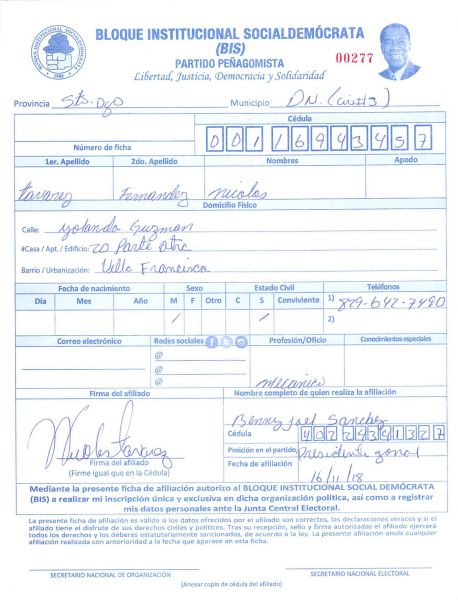 BLOQUE INSTITUCIONAL SOCIALDEMÓCRATA
(BIS)
PARTIDO PEÑAGOMISTA
Libertad, Justicia, Democracia y Solidaridad
00277
Provincia Sto. Dgo Municipio D.N. (circ #3)
Cédula
Número de ficha 00116943457
1er. Apellido 2do. Apellido Nombres Apodo
tavarez Fernandez nicolas
Domicilio Físico
Calle: yolanda Guzman
#Casa / Apt. / Edificio: 20 Parte atra
Barrio / Urbanización: Villa Francisca
Fecha de nacimiento Sexo Estado Civil Teléfonos
Día Mes Año M F Otro C S Conviviente 1) 829-642-7490
/ / 2)
Correo electrónico Redes sociales Profesión/Oficio Conocimientos especiales
@
@
@ Mecanico
Firma del afiliado Nombre completo de quien realiza el afiliación
Benny Joel Sanchez
Nicolas Tavarez
Cédula 40224341327
Posición en el partido Presidente zonal
Firma del afiliado
(Firme igual que en la Cédula)
Fecha de afiliación
16/11/18
Mediante la presente ficha de afiliación autorizo al BLOQUE INSTITUCIONAL SOCIAL DEMÓCRATA
(BIS) a realizar mi inscripción única y exclusiva en dicha organización política, así como a registrar
mis datos personales ante la Junta Central Electoral.
La presente afiliación es válida si los datos ofrecidos por el afiliado son correctos, las declaraciones veraces y si el
afiliado tiene el disfrute de sus derechos civiles y políticos. Tras su recepción, sello y firma autorizadas el afiliado ejercerá
todos los derechos y los deberes estatutariamente sancionados, de acuerdo a la ley. La presente afiliación anula cualquier
afiliación realizada con anterioridad a la fecha que aparece en esta ficha.
SECRETARIO NACIONAL DE ORGANIZACIÓN SECRETARIO NACIONAL ELECTORAL
(Anexar copia de cédula del afiliado)